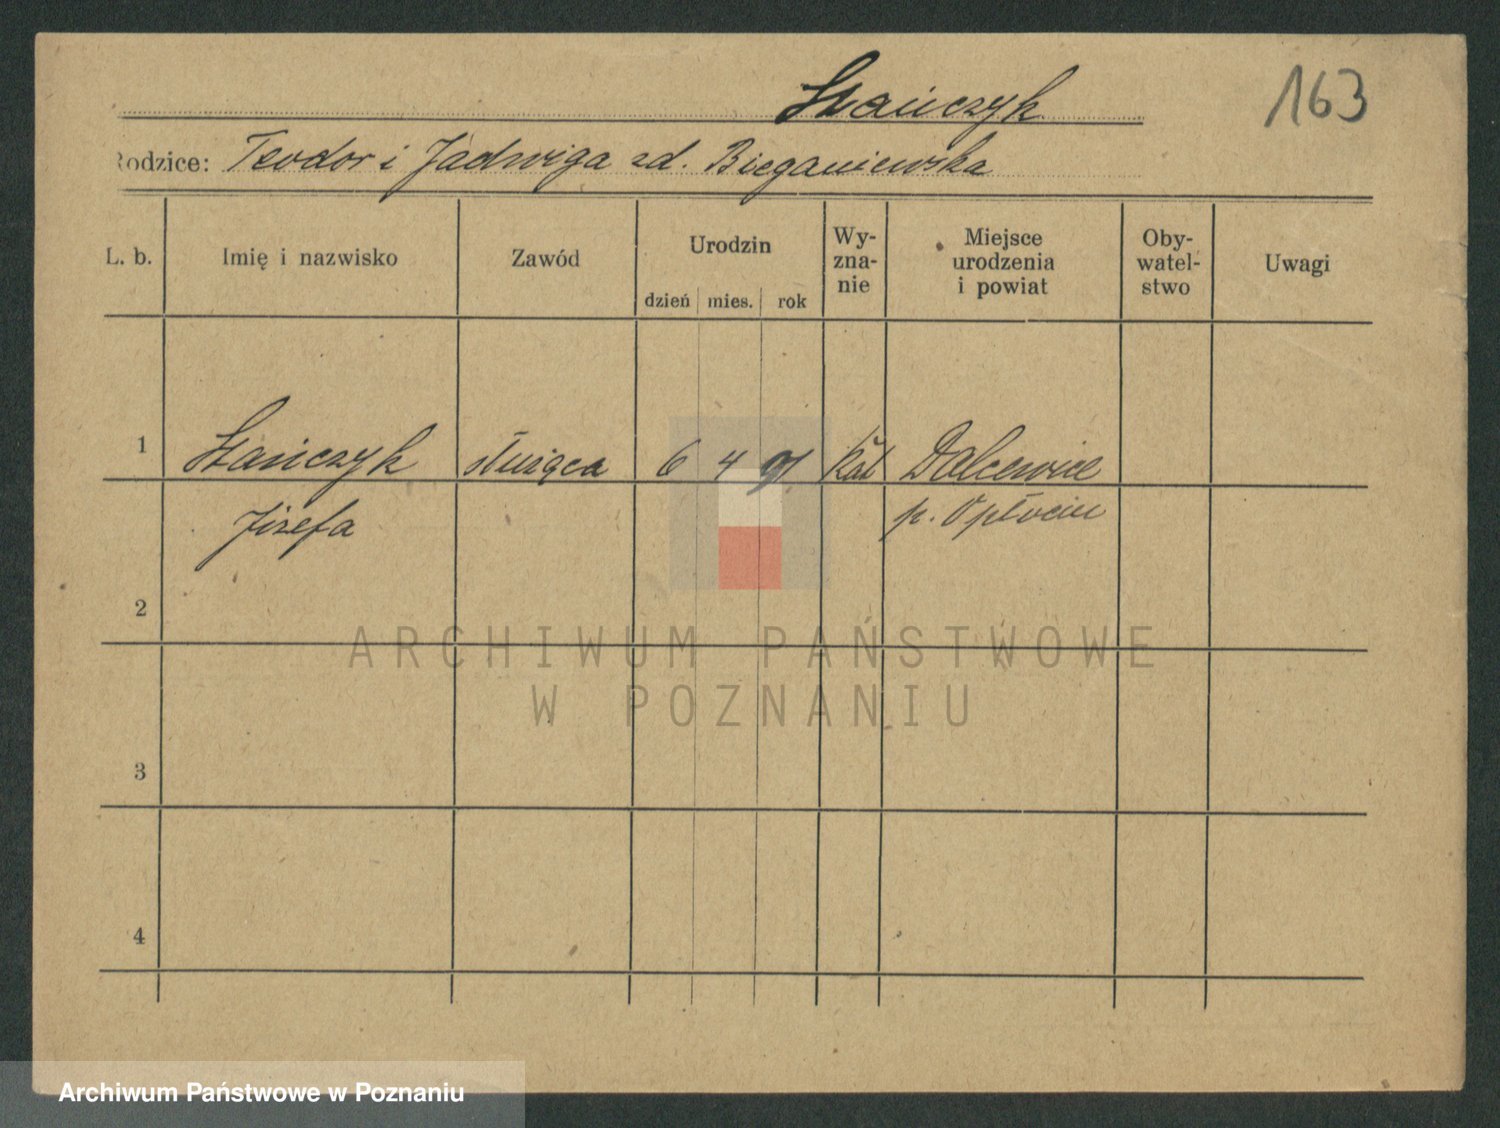 Stańczyk
163
Rodzice: Teodor i Jadwiga zd. Bieganiewska
L. b.
Imię i nazwisko
Zawód
Urodzin
dzień mies. rok
Wy-
zna-
nie
Miejsce
urodzenia
i powiat
Oby-
watel-
stwo
Uwagi
1
Stańczyk
służąca
6 4 91
Kat
Dalcewice
p. Opłociu
Józefa
2
ARCHIWUM PAŃSTWOWE
W POZNANIU
3
4
Archiwum Państwowe w Poznaniu